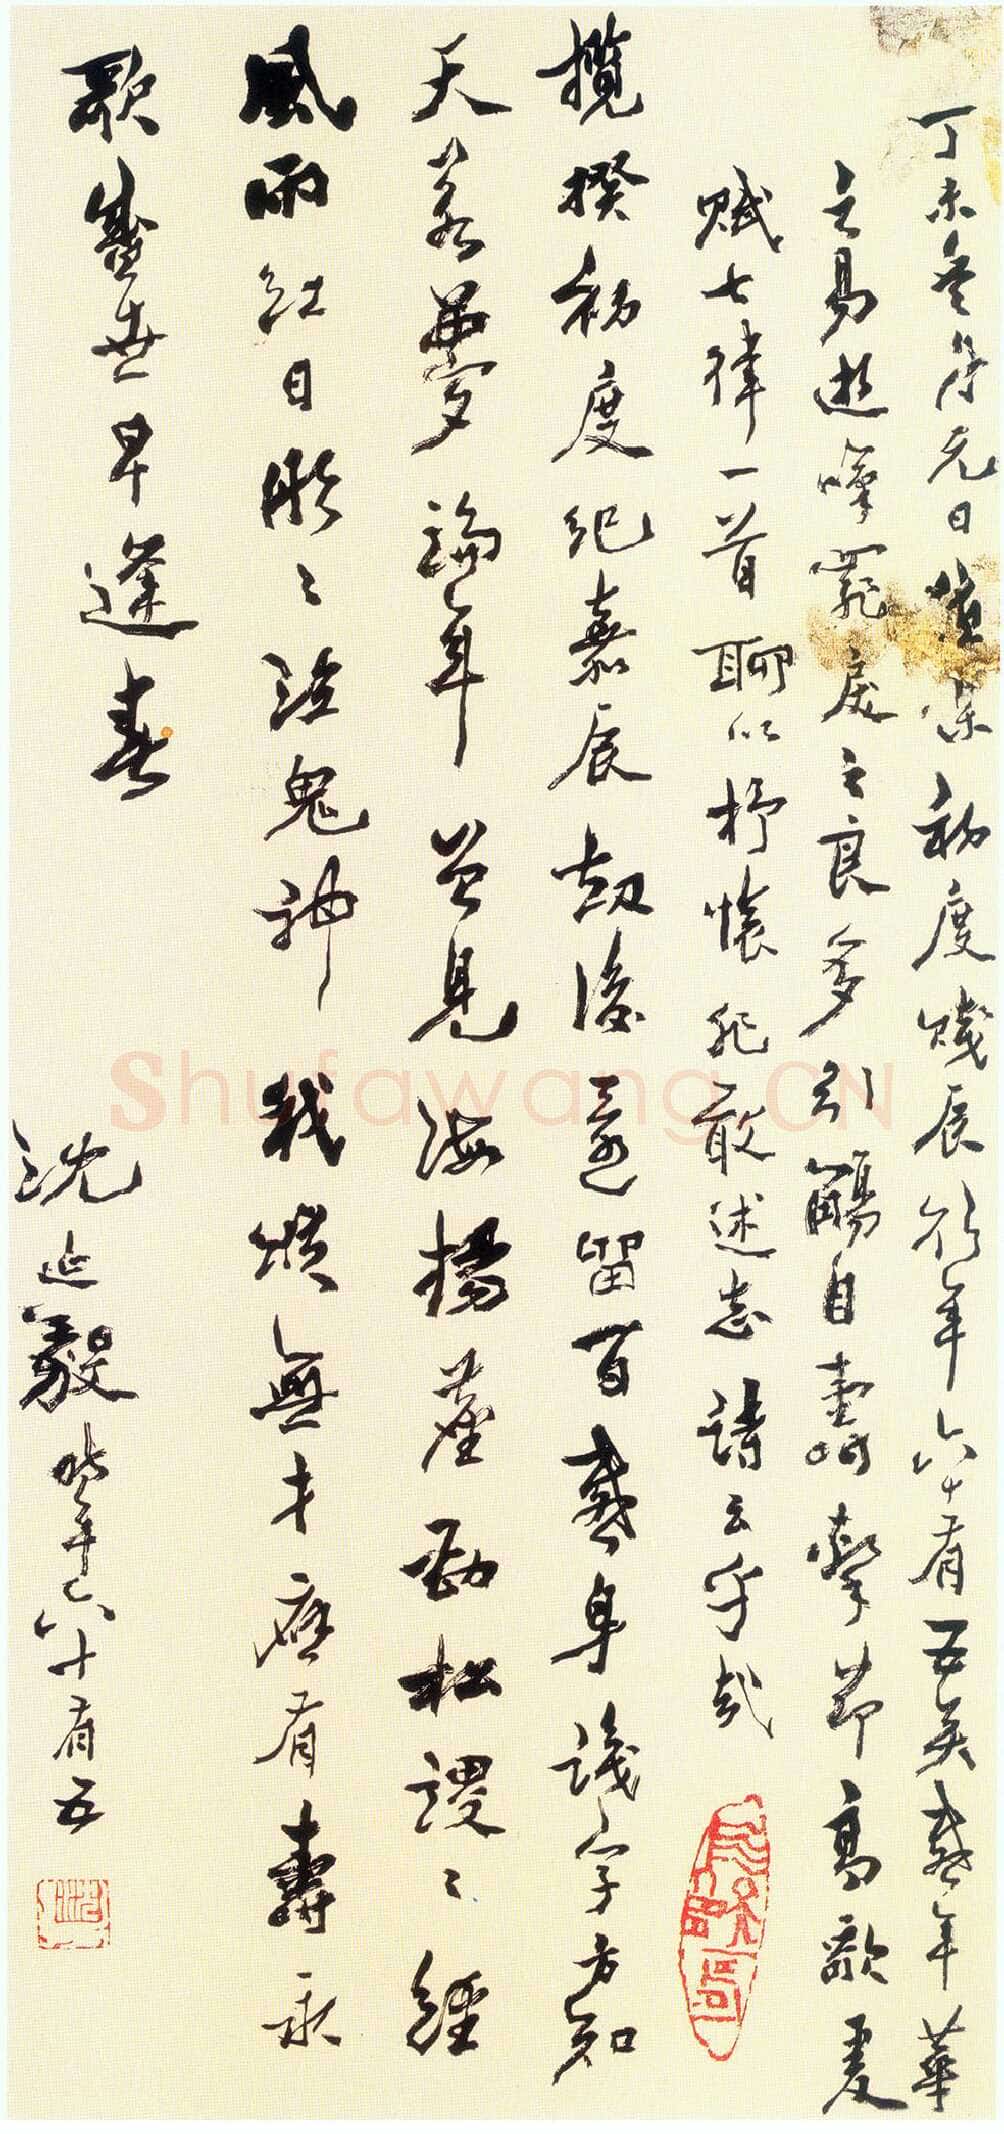 丁未冬月元日值某初度賤辰行年六十有五矣感年華
之易逝嘆罷癃之良多引觴自壽擊節高歌爰
賦七律一首聊以抒懷非敢述志詩云乎哉
攬揆初度紀嘉辰劫後還留百感身識字方知
天若夢論年曾見海揚塵勁松謖謖經
風雨紅日彤彤泣鬼神我愧無才應有壽永
歌盛世早逢春
沈延毅時年六十有五
Shufawang.CN